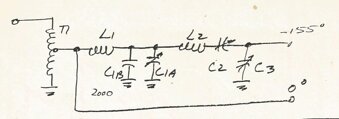 T1
L1
L2
-155°
C1B
C1A
C2
C3
2000
0°